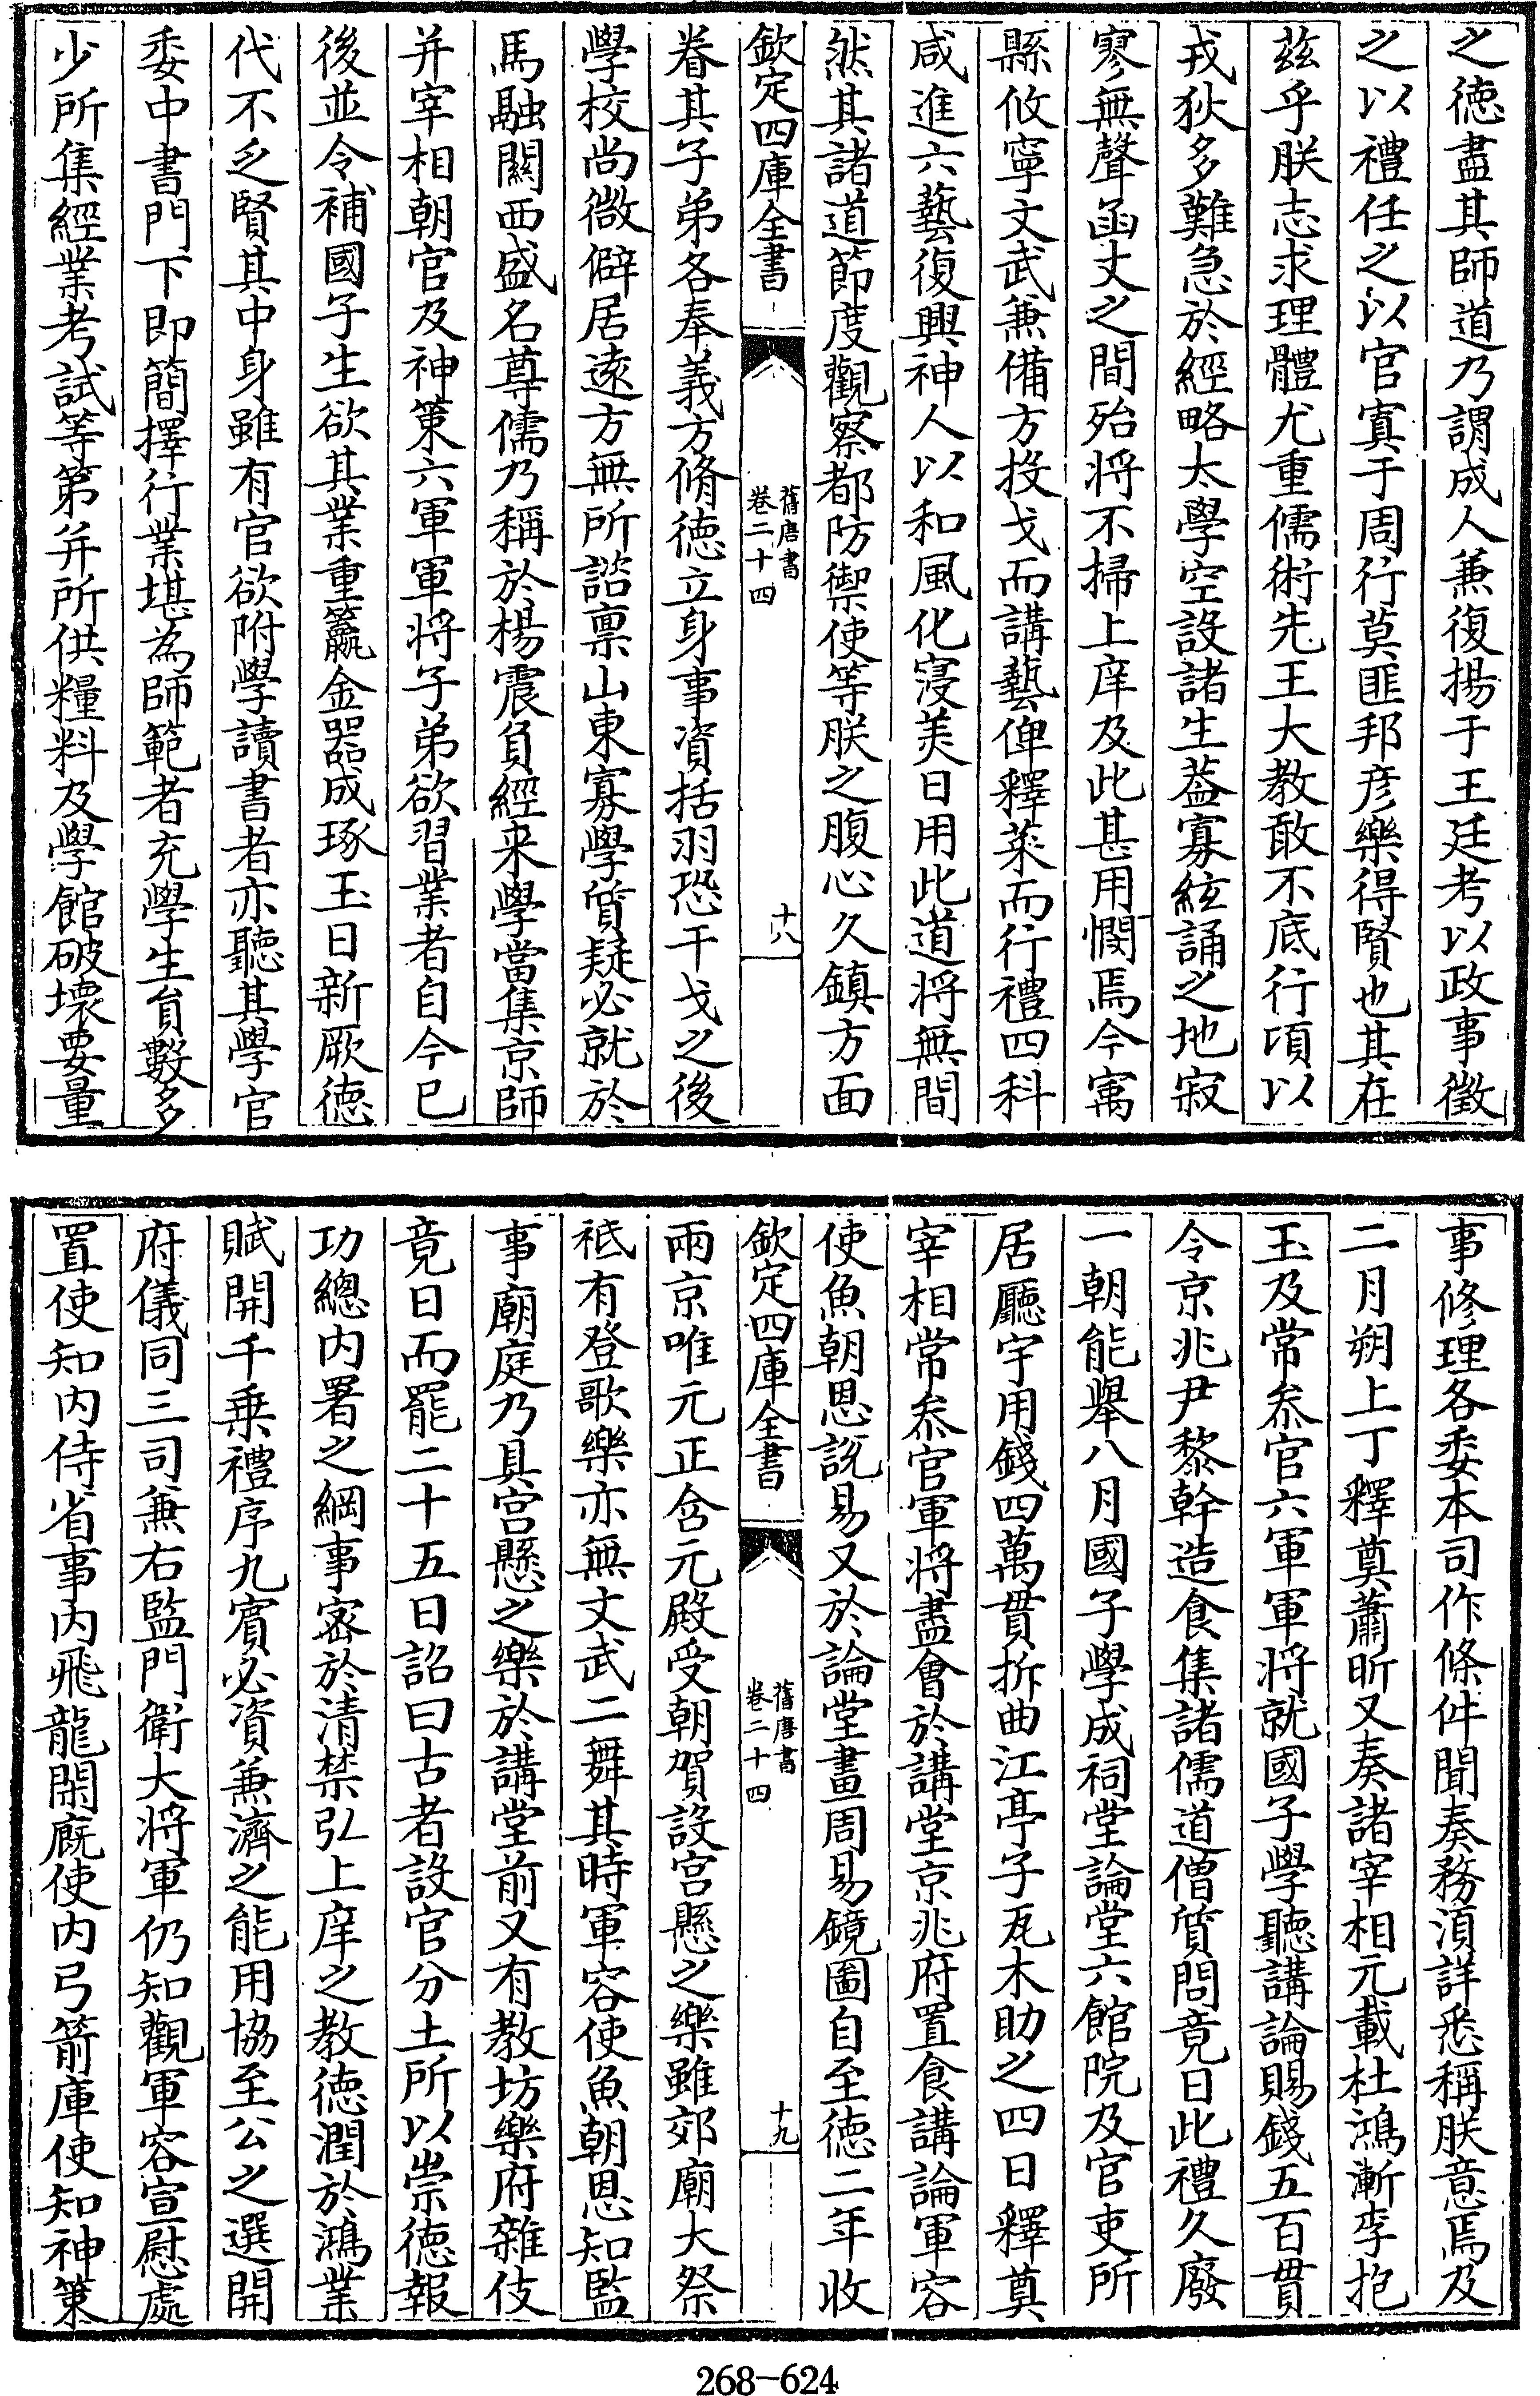 之德盡其師道乃謂成人兼復揚于王廷考以政事徵
之以禮任之以官寘于周行莫匪邦彦樂得賢也其在
兹乎朕志求理體尤重儒術先王大教敢不底行頃以
戎狄多難急於經略太學空設諸生葢寡絃誦之地寂
寥無聲函丈之間殆將不掃上庠及此甚用憫焉今寓
縣攸寧文武兼備方投戈而講藝俾釋菜而行禮四科
咸進六藝復興神人以和風化寖美日用此道將無間
然其諸道節度觀察都防禦使等朕之腹心久鎮方面
欽定四庫全書
舊唐書
卷二十四
十八
眷其子弟各奉義方脩德立身事資括羽恐干戈之後
學校尚微僻居遠方無所諮禀山東寡學質疑必就於
馬融關西盛名尊儒乃稱於楊震負經来學當集京師
并宰相朝官及神策六軍軍將子弟欲習業者自今已
後並令補國子生欲其業重籯金器成琢玉日新厥德
代不乏賢其中身雖有官欲附學讀書者亦聽其學官
委中書門下即簡擇行業堪為師範者充學生員數多
少所集經業考試等第并所供糧料及學館破壞要量
事修理各委本司作條件聞奏務湏詳悉稱朕意焉及
二月朔上丁釋奠蕭昕又奏諸宰相元載杜鴻漸李抱
玉及常叅官六軍軍將就國子學聽講論賜錢五百貫
令京兆尹黎幹造食集諸儒道僧質問竟日此禮久廢
一朝能舉八月國子學成祠堂論堂六館院及官吏所
居廳宇用錢四萬貫拆曲江亭子瓦木助之四日釋奠
宰相常叅官軍將盡會於講堂京兆府置食講論軍容
使魚朝恩說易又於論堂畫周易鏡圖自至德二年收
欽定四庫全書
舊唐書
卷二十四
十九
兩京唯元正含元殿受朝賀設宮懸之樂雖郊廟大祭
祗有登歌樂亦無文武二舞其時軍容使魚朝恩知監
事廟庭乃具宮懸之樂於講堂前又有教坊樂府雜伎
竟日而罷二十五日詔曰古者設官分土所以崇德報
功總内署之綱事密於清禁弘上庠之教德潤於鴻業
賦開千乗禮序九賓必資兼濟之能用協至公之選開
府儀同三司兼右監門衛大將軍仍知觀軍容宣慰處
置使知内侍省事内飛龍閑廐使内弓箭庫使知神策
268-624